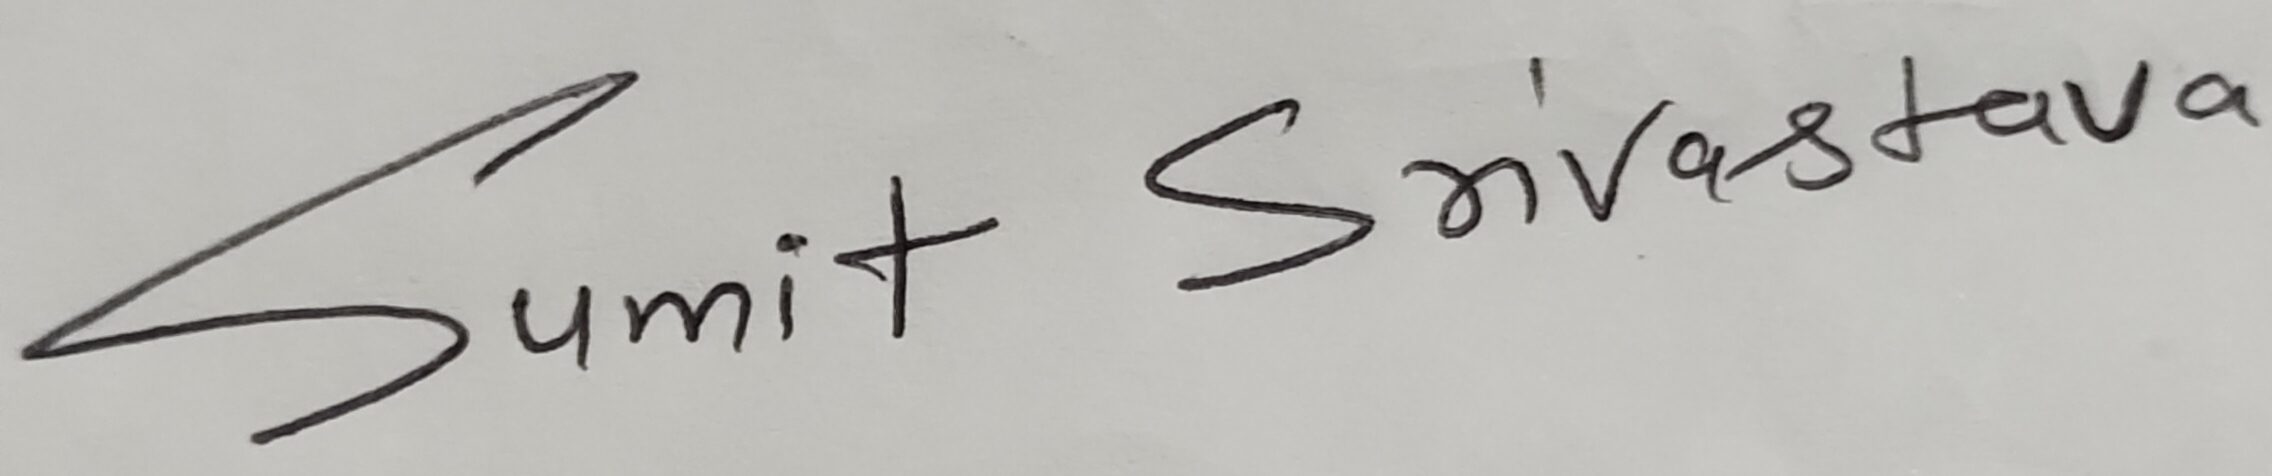 Sumit Srivastava